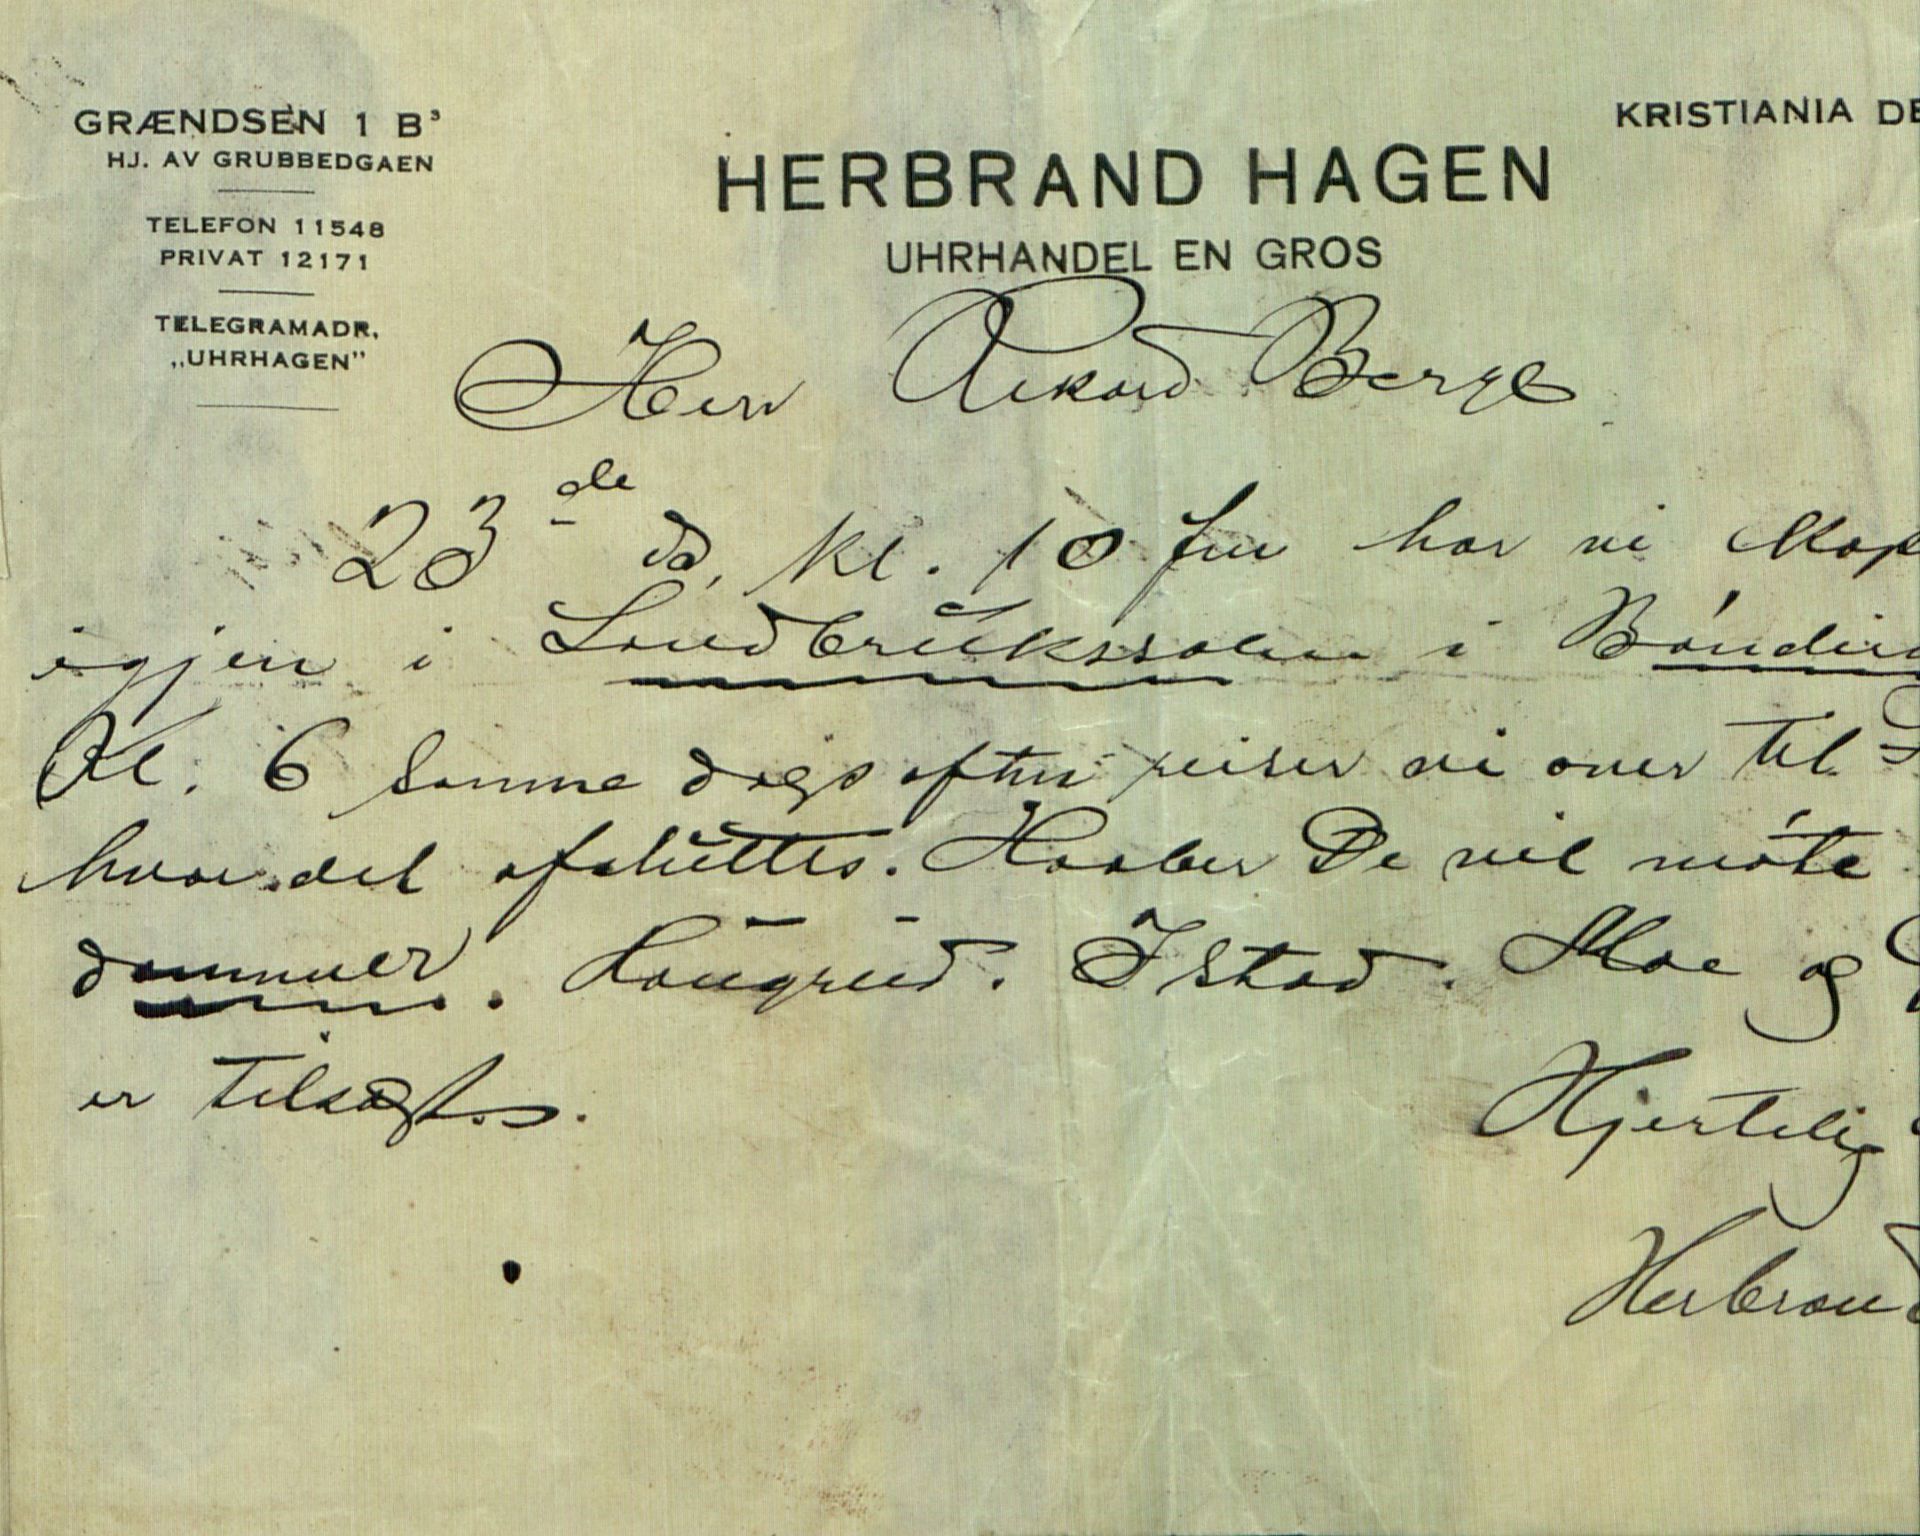 GRÆNDSEN 1 B³
HJ. AV GRUBBEDGAEN
TELEFON 11548
PRIVAT 12171
TELEGRAMADR.
„UHRHAGEN”
KRISTIANIA DE
HERBRAND HAGEN
UHRHANDEL EN GROS
Herr Rikard Berge
23de ds, kl. 10 fm har vi Kap
igjen i Landbrukssalen i Bøndern
Kl. 6 samme dags aften reiser vi over til
hvor det afsluttes. Haaber De vil møte
dommer. Haugrud. Istad. Moe og
er tilsagt.
Hjertelig
Herbrand